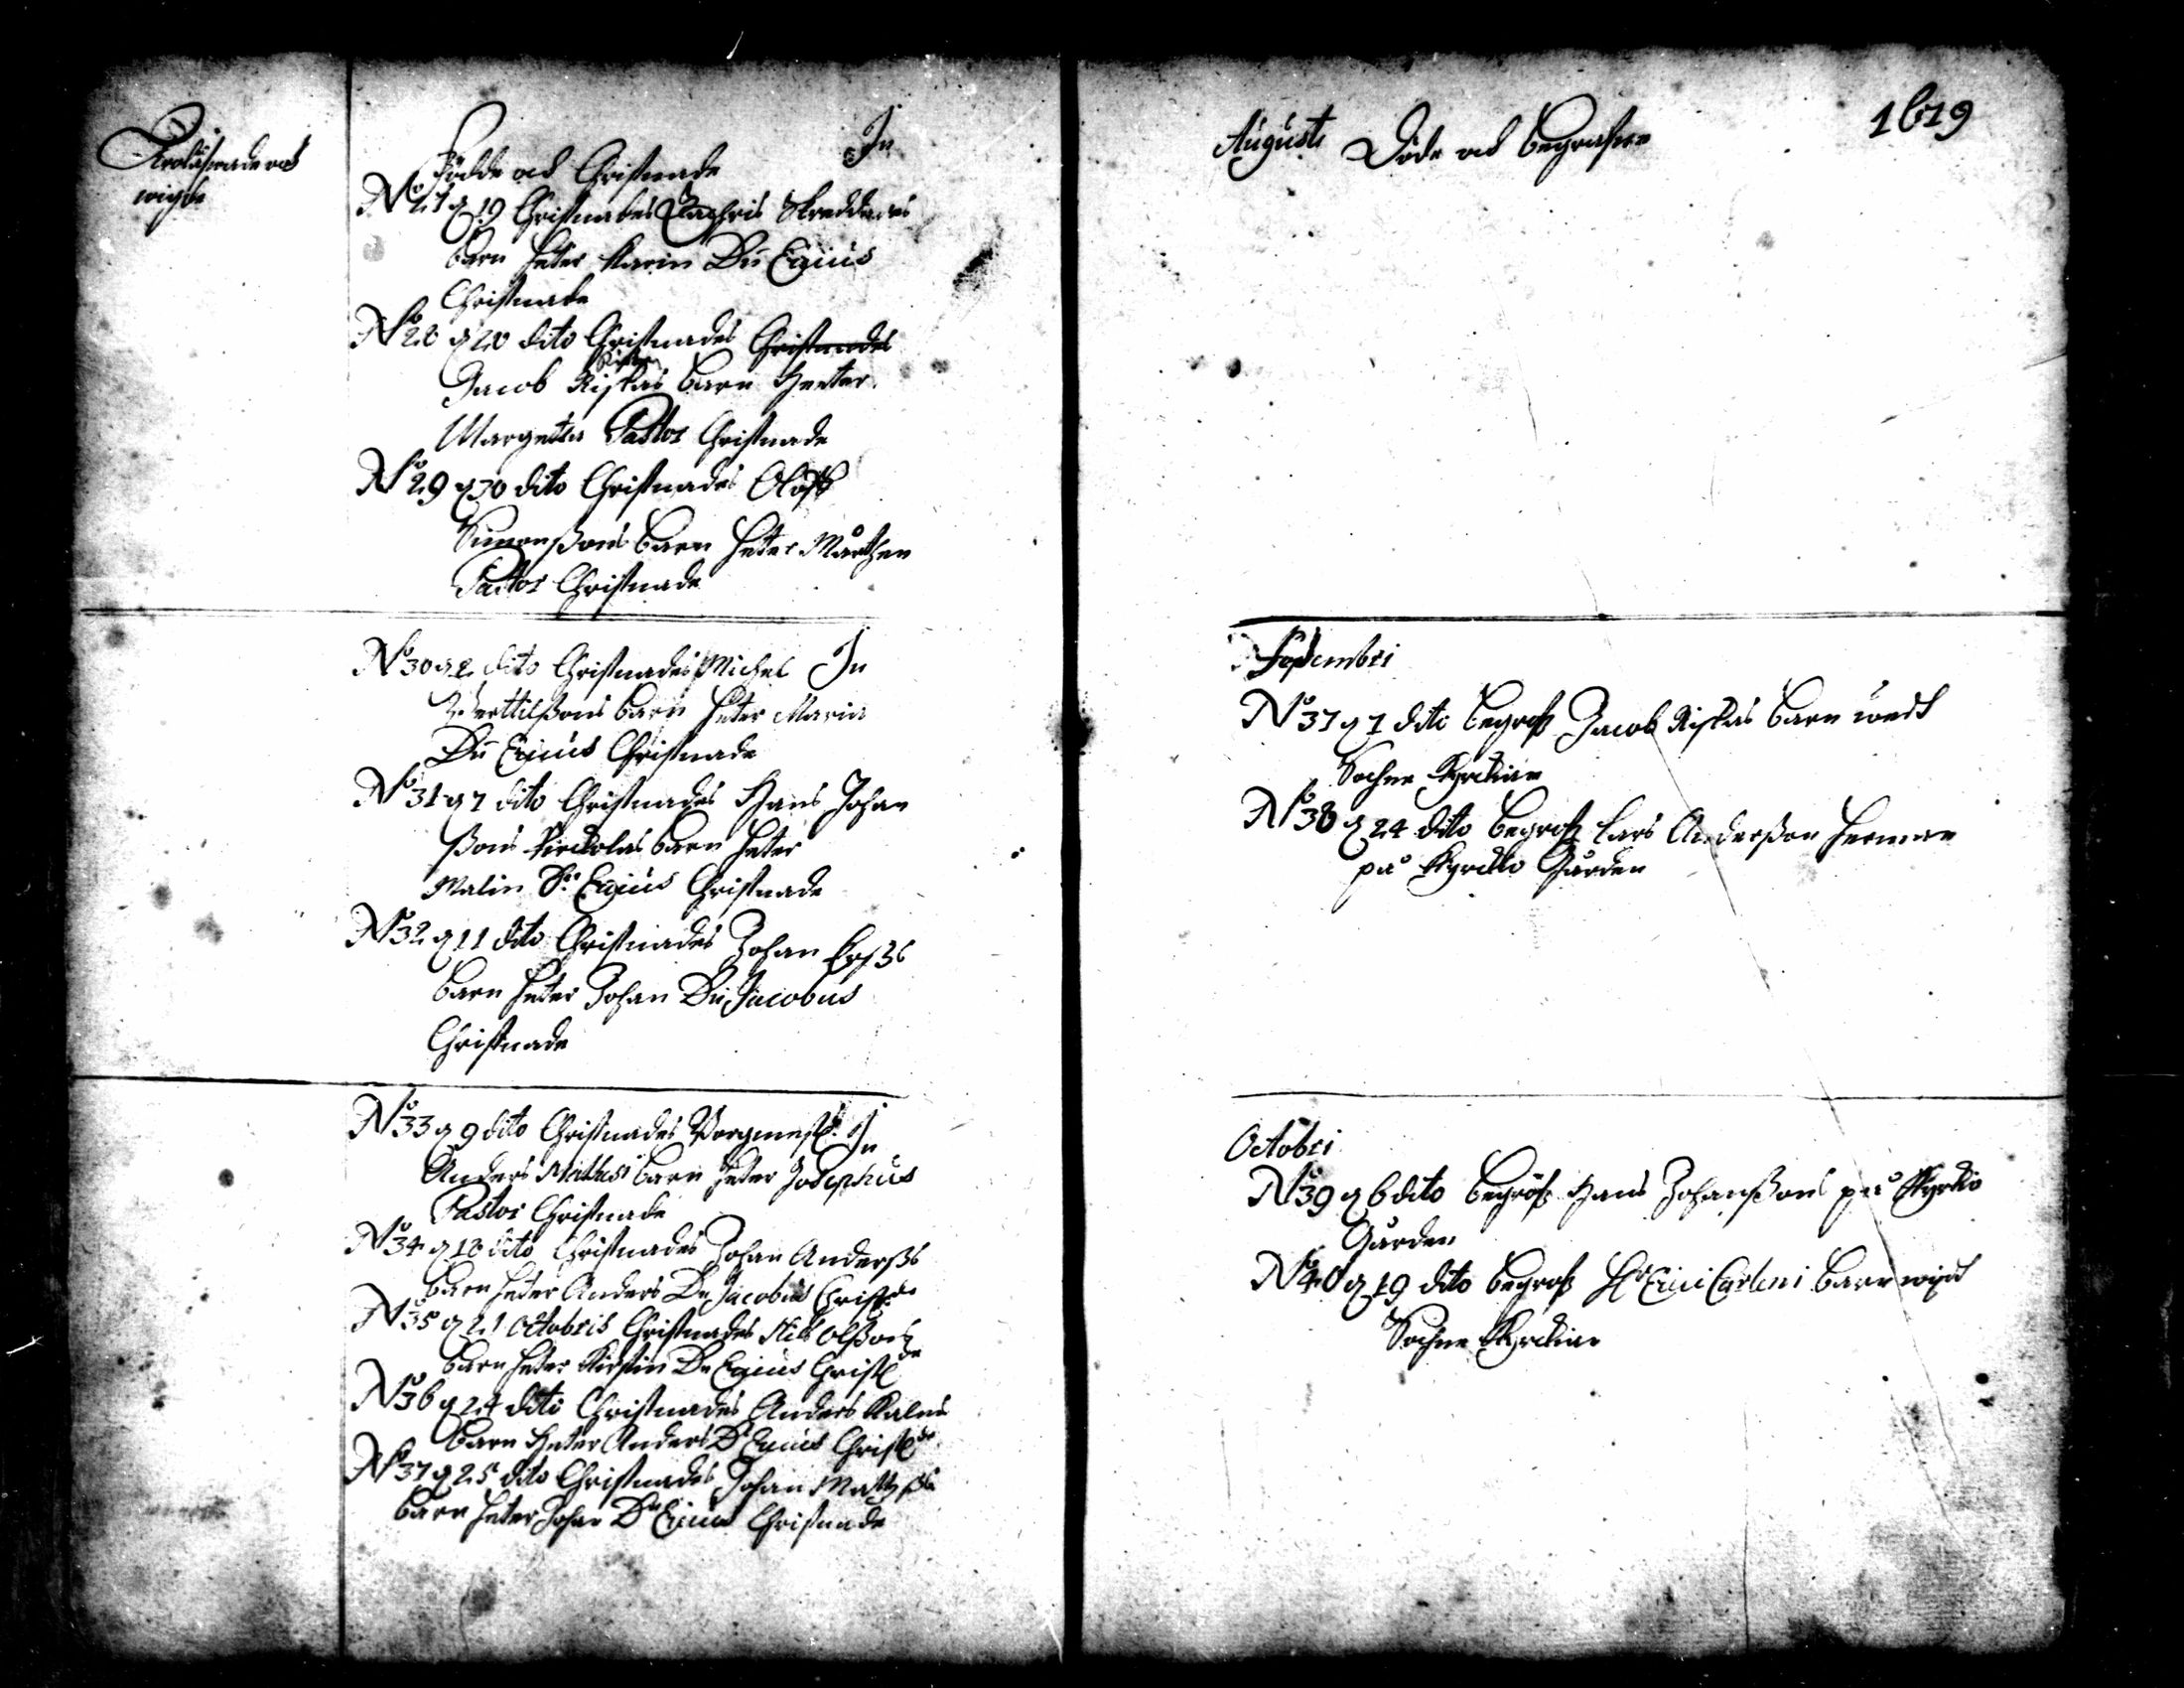 Trolåfwade och
wigde
Födde och Christnade
In
No 27 d 19 Christnades Zachris Skreddares
barn heter Karin Dn Ericus
Christnade
No 28 d 20 dito Christnades Christnades
Jacob Riskas barn heeter
Margetta Pastor Christnade
No 29 d 30 dito Christnades Oloff
Simonßons barn heter Mårthen
Pastor Christnade
No 30 d 2 dito Christnades Michel In
Berttilßons barn heter Maria
Dn Ericus Christnade
No 31 d 7 dito Christnades Hans Johan
ßons barn heter
Malin Dn Ericus Christnade
No 32 d 11 dito Christnades Johan
barn heter Johan Dn Jacobus
Christnade
No 33 d 9 dito Christnades Borgmest. In
Anders barn heter Josephus
Pastor Christnade
No 34 d 18 dito Christnades Johan Anderßs
barn heter Anders Dn Jacobus Christ.de
No 35 d 21 Octobris Christnades Nils Olßons
barn heter Kirstin Dn Ericus Christde
No 36 d 24 dito Christnades Anders
barn heter Anders Dn Ericus Christde
No 37 d 25 dito Christnades Johan Mattzßs
barn heter Johan Dn Ericus Christnade
Augusti Döde och begrafne 1679
Septembri
No 37 d 7 dito begrofs Jacob Riskas barn widh
Sochne Kyrckian
No 38 d 24 dito begrofs Lars Anderßon
på Kyrckio Gården
Octobri
No 39 d 6 dito begrofs Hans Johanßons på Kyrkio
Gården
No 40 d 19 dito begrofs Hr Erici Carleni barn widh
Sochne Kyrckian